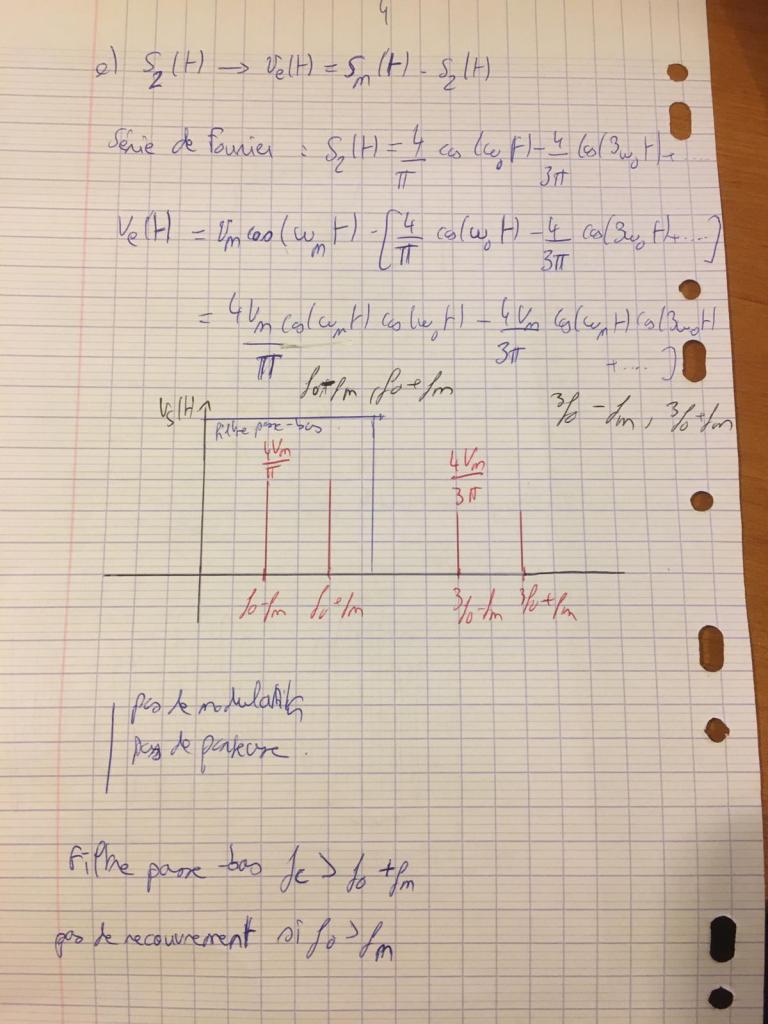 4
e) S₂(t) → Ve(t) = Sm(t) · S₂(t)
Série de Fourier : S₂(t) = 4/π cos(ω₀t) - 4/3π cos(3ω₀t) + ....
Ve(t) = Vm cos(ωm t) · [4/π cos(ω₀t) - 4/3π cos(3ω₀t) + ....]
= 4Vm/π cos(ωm t) cos(ω₀t) - 4Vm/3π cos(ωm t) cos(3ω₀t)
+ .... ]
f₀-fm, f₀+fm
3f₀-fm, 3f₀+fm
Vs(t)
Filtre passe-bas
4Vm/π
4Vm/3π
f₀-fm f₀+fm 3f₀-fm 3f₀+fm
pas de modulation
pas de porteuse.
Filtre passe-bas fc > f₀+fm
pas de recouvrement si f₀ > fm